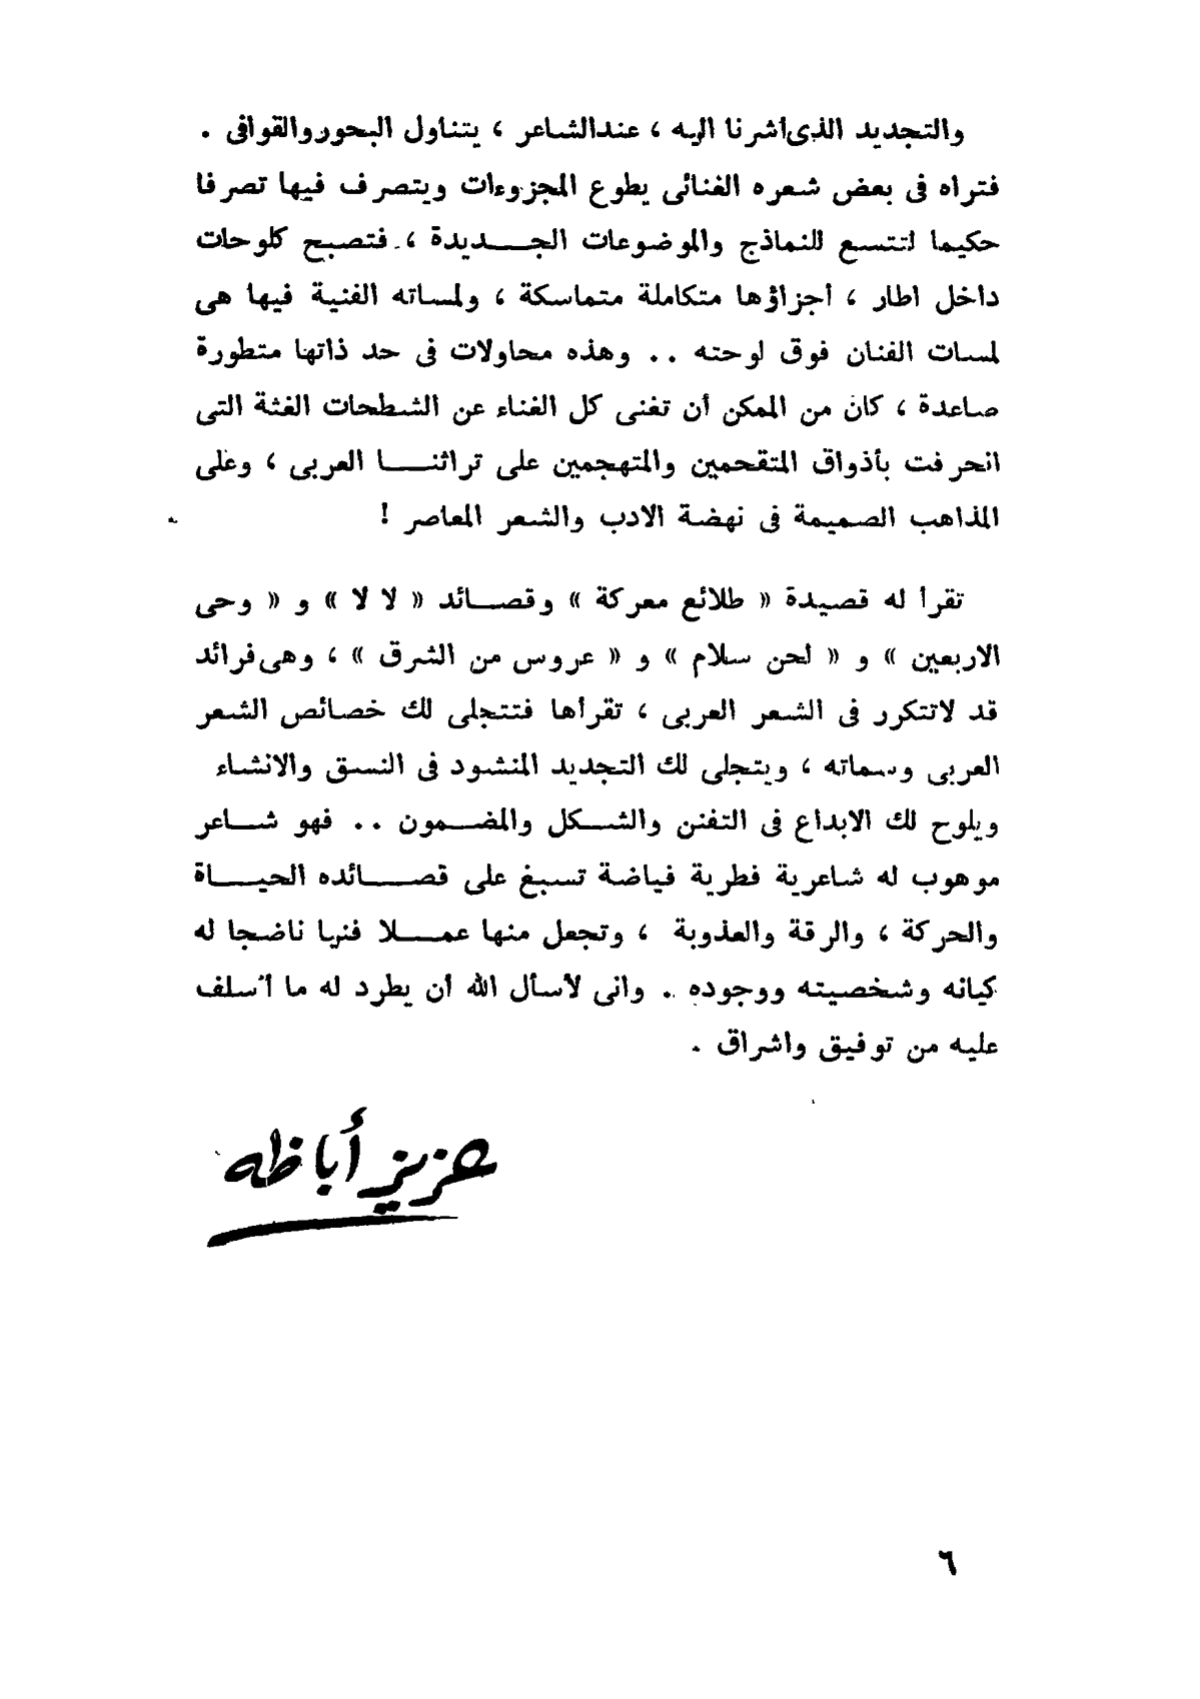 والتجديد الذى أشرنا اليه ، عند الشاعر ، يتناول البحور والقوافى .
فتراه فى بعض شعره الغنائى يطوع المجزوءات ويتصرف فيها تصرفا
حكيما لتتسع للنماذج والموضوعات الجــديدة ، فتصبح كلوحات
داخل اطار ، أجزاؤها متكاملة متماسكة ، ولمساته الفنية فيها هى
لمسات الفنان فوق لوحته .. وهذه محاولات فى حد ذاتها متطورة
صاعدة ، كان من الممكن أن تغنى كل الغناء عن الشطحات الغثة التى
انحرفت بأذواق المتقحمين والمتهجمين على تراثنــا العربى ، وعلى
المذاهب الصميمة فى نهضة الادب والشعر المعاصر !
تقرأ له قصيدة « طلائع معركة » وقصــائد « لا لا » و « وحى
الاربعين » و « لحن سلام » و « عروس من الشرق » ، وهى فرائد
قد لاتتكرر فى الشعر العربى ، تقرأها فتتجلى لك خصائص الشعر
العربى وسماته ، ويتجلى لك التجديد المنشود فى النسق والانشاء
ويلوح لك الابداع فى التفنن والشــكل والمضــمون .. فهو شــاعر
موهوب له شاعرية فطرية فياضة تسبغ على قصــائده الحيــاة
والحركة ، والرقة والعذوبة ، وتجعل منها عمــلا فنيا ناضجا له
كيانه وشخصيته ووجوده .. وانى لأسأل الله أن يطرد له ما أسلف
عليه من توفيق واشراق .
عزيز أباظه
٦